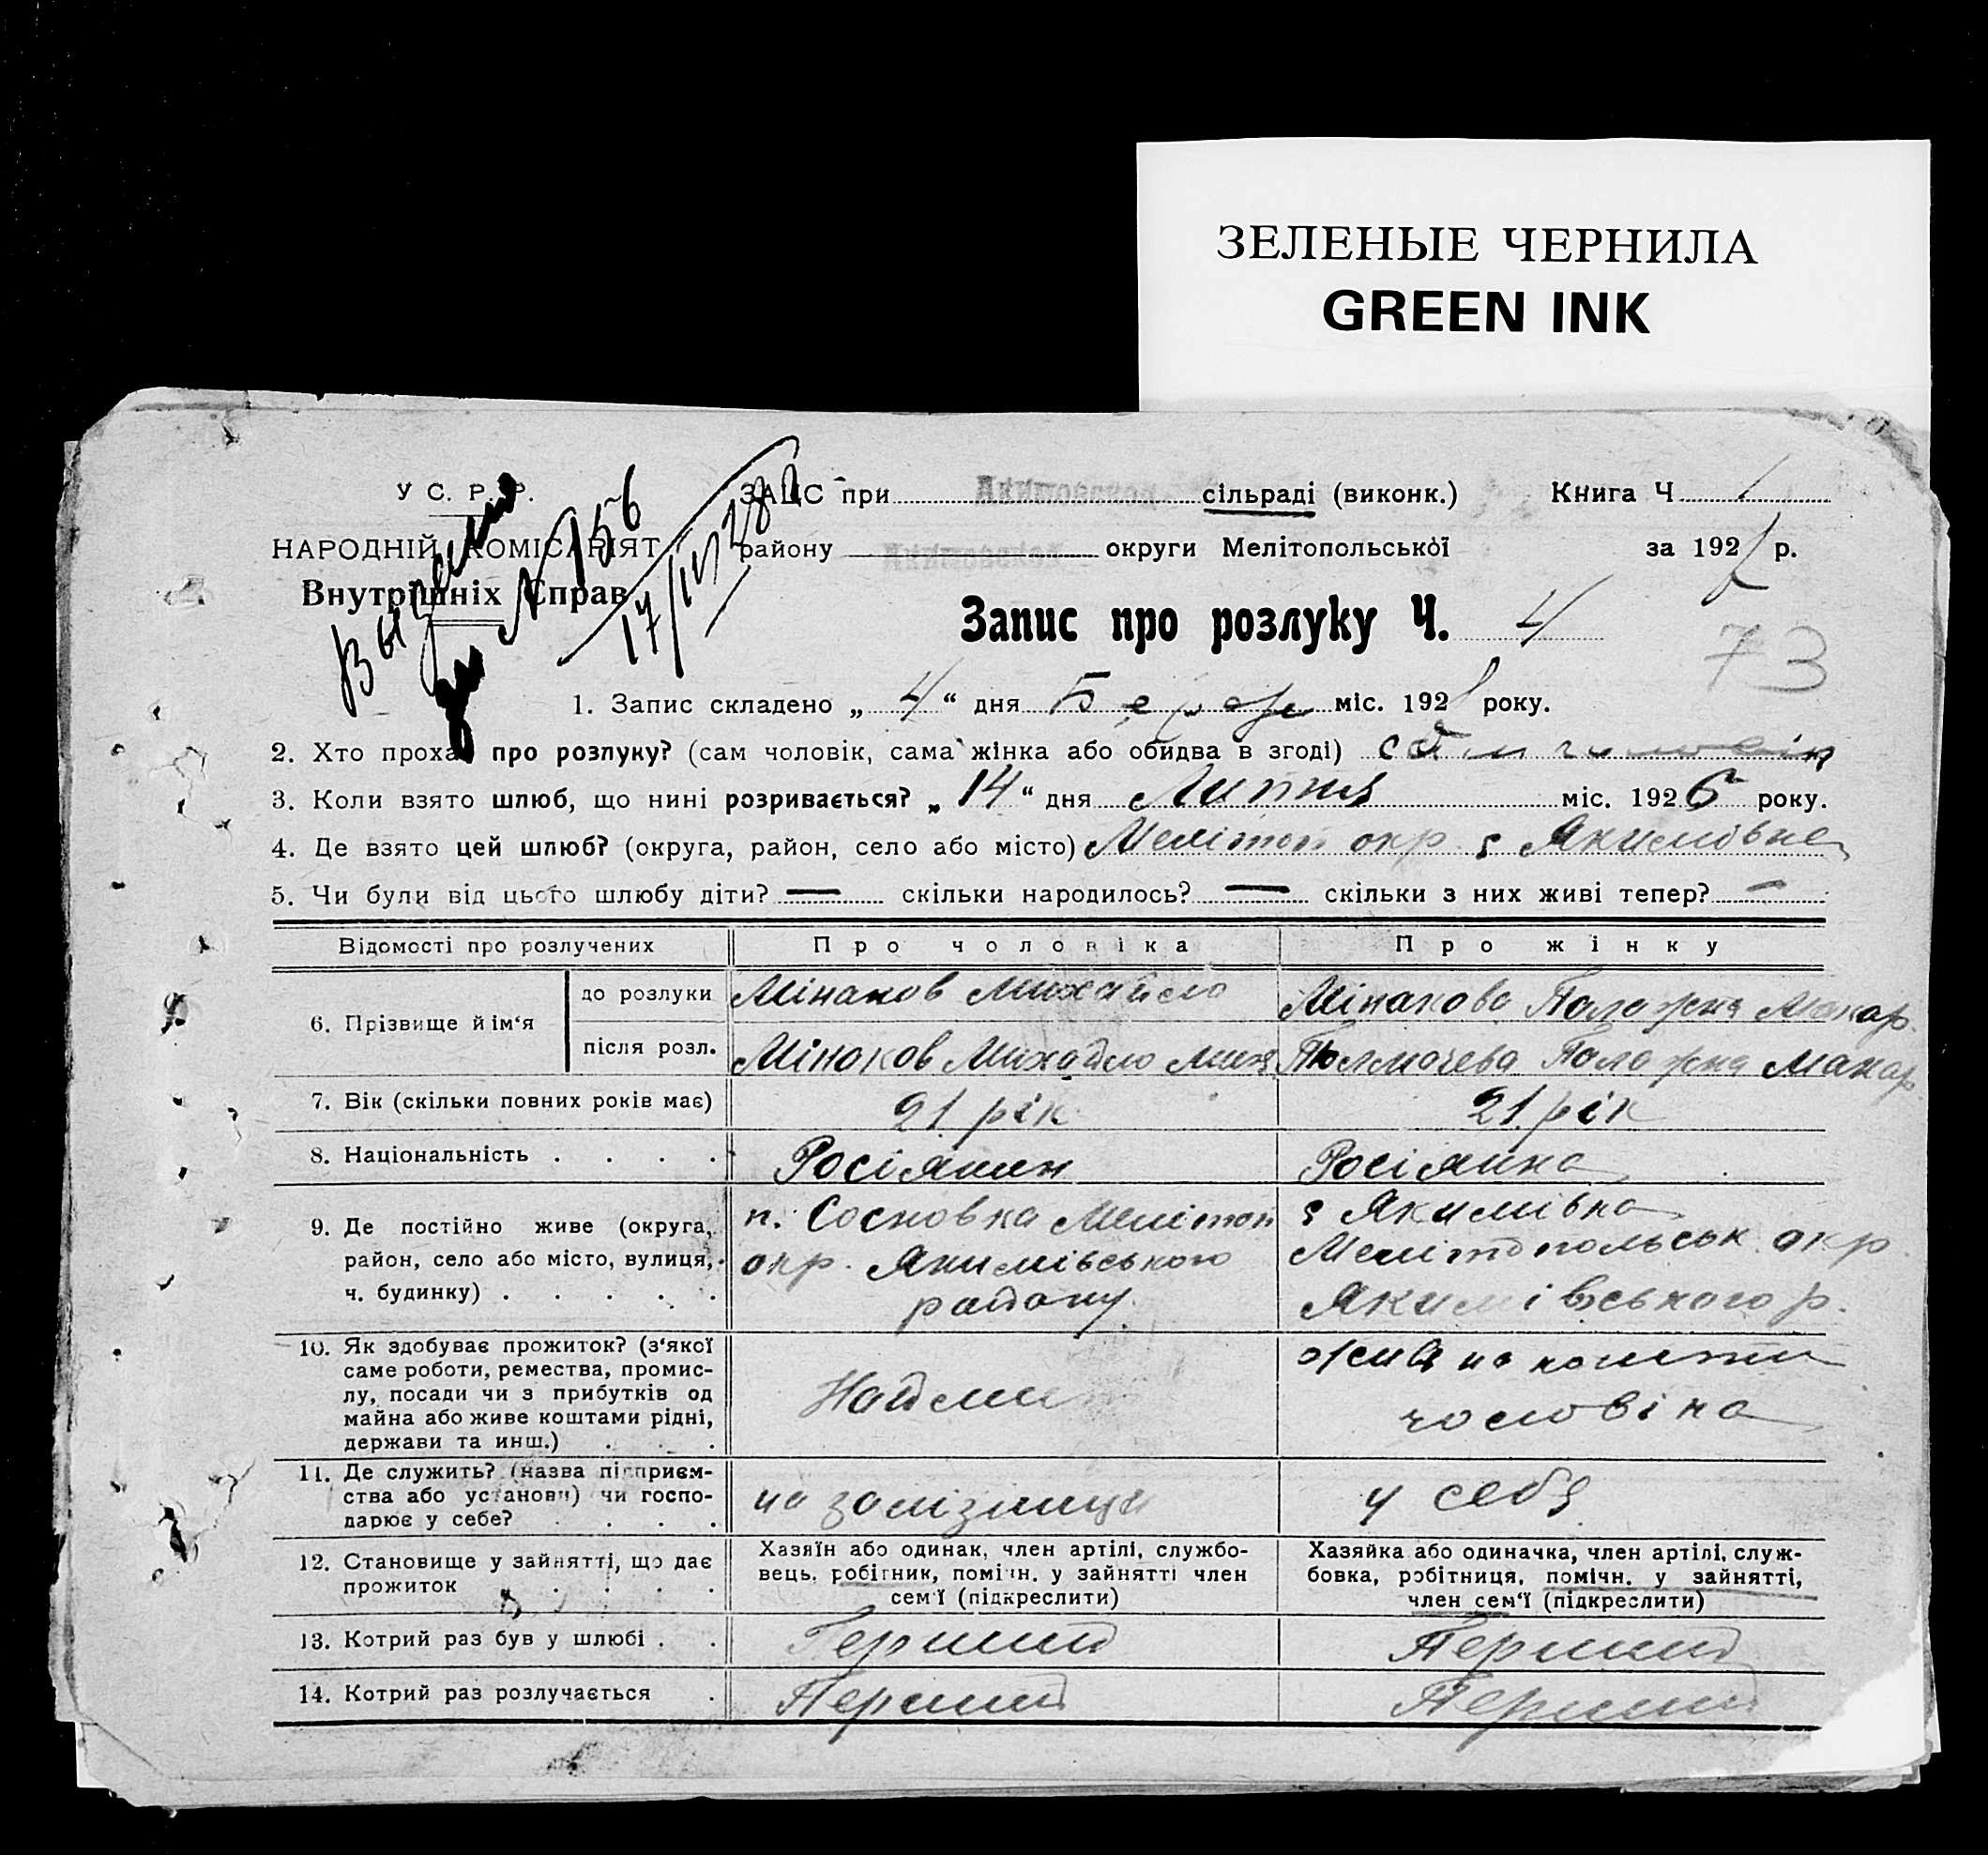 ЗЕЛЕНЫЕ ЧЕРНИЛА
GREEN INK
У С. Р. Р.
НАРОДНІЙ КОМІСАРІЯТ
Внутрішніх Справ
№ 156
17/III 28
ЗАЦС при Якимовській сільраді (виконк.) Книга Ч 1
району округи Мелітопольської за 1928 р.
Запис про розлуку Ч. 4
73
1. Запис складено „ 4 “ дня Берез міс. 1928 року.
2. Хто прохає про розлуку? (сам чоловік, сама жінка або обидва в згоді) сам чоловік
3. Коли взято шлюб, що нині розривається? „ 14 “ дня Липня міс. 1926 року.
4. Де взято цей шлюб? (округа, район, село або місто) Мелітоп окр. с Якимовка
5. Чи були від цього шлюбу діти? — скільки народилось? — скільки з них живі тепер? —
Відомості про розлучених Про чоловіка Про жінку
6. Прізвище й ім‘я
до розлуки Мінаков Михайло Мінакова Палажка Макар.
після розл. Мінаков Михайло Палажка Макар
7. Вік (скільки повних років має) 21. рік 21. рік
8. Національність . . . . Росіянин Росіянка
9. Де постійно живе (округа, район, село або місто, вулиця, ч. будинку) . . . . .
п. Сосновка Мелітоп
окр. Якимівського
району.
с Якимівка
Мелітопольськ. окр.
Якимівського р.
10. Як здобуває прожиток? (з‘якої
саме роботи, ремества, промис-
лу, посади чи з прибутків од
майна або живе коштами рідні,
держави та инш.) . . .
Найми
жив на кошти
чоловіка
11. Де служить? (назва підприєм-
ства або установи) чи госпо-
дарює у себе? . . . .
на залізниці
у себя
12. Становище у зайнятті, що дає
прожиток . . . .
Хазяїн або одинак, член артілі, службо-
вець, робітник, помічн. у зайнятті член
сем‘ї (підкреслити)
Хазяйка або одиначка, член артілі, служ-
бовка, робітниця, помічн. у зайнятті,
член сем‘ї (підкреслити)
13. Котрий раз був у шлюбі . . Перший Перший
14. Котрий раз розлучається . Перший Перший